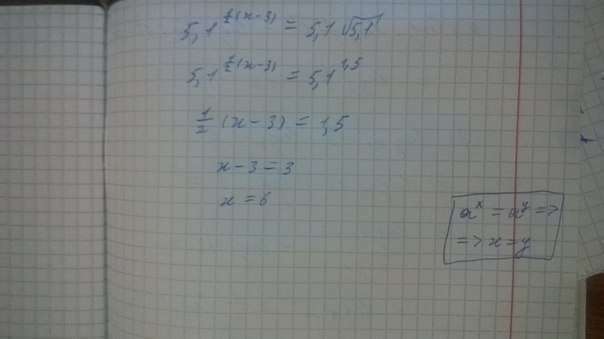 5,1^{\frac{1}{2}(x-3)} = 5,1 \sqrt{5,1}
5,1^{\frac{1}{2}(x-3)} = 5,1^{1,5}
\frac{1}{2} (x-3) = 1,5
x-3=3
x=6
a^x = a^y =>
=> x=y